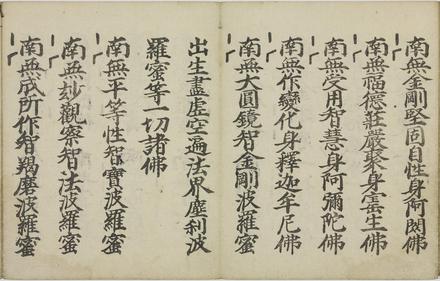 南無金剛堅固自性身阿閦佛
南無福德莊嚴聚身寶生佛
南無受用智慧身阿彌陀佛
南無作變化身釋迦牟尼佛
南無大圓鏡智金剛波羅蜜
出生盡虛空遍法界塵刹波
羅蜜等一切諸佛
南無平等性智寶波羅蜜
南無妙觀察智法波羅蜜
南無成所作智羯磨波羅蜜